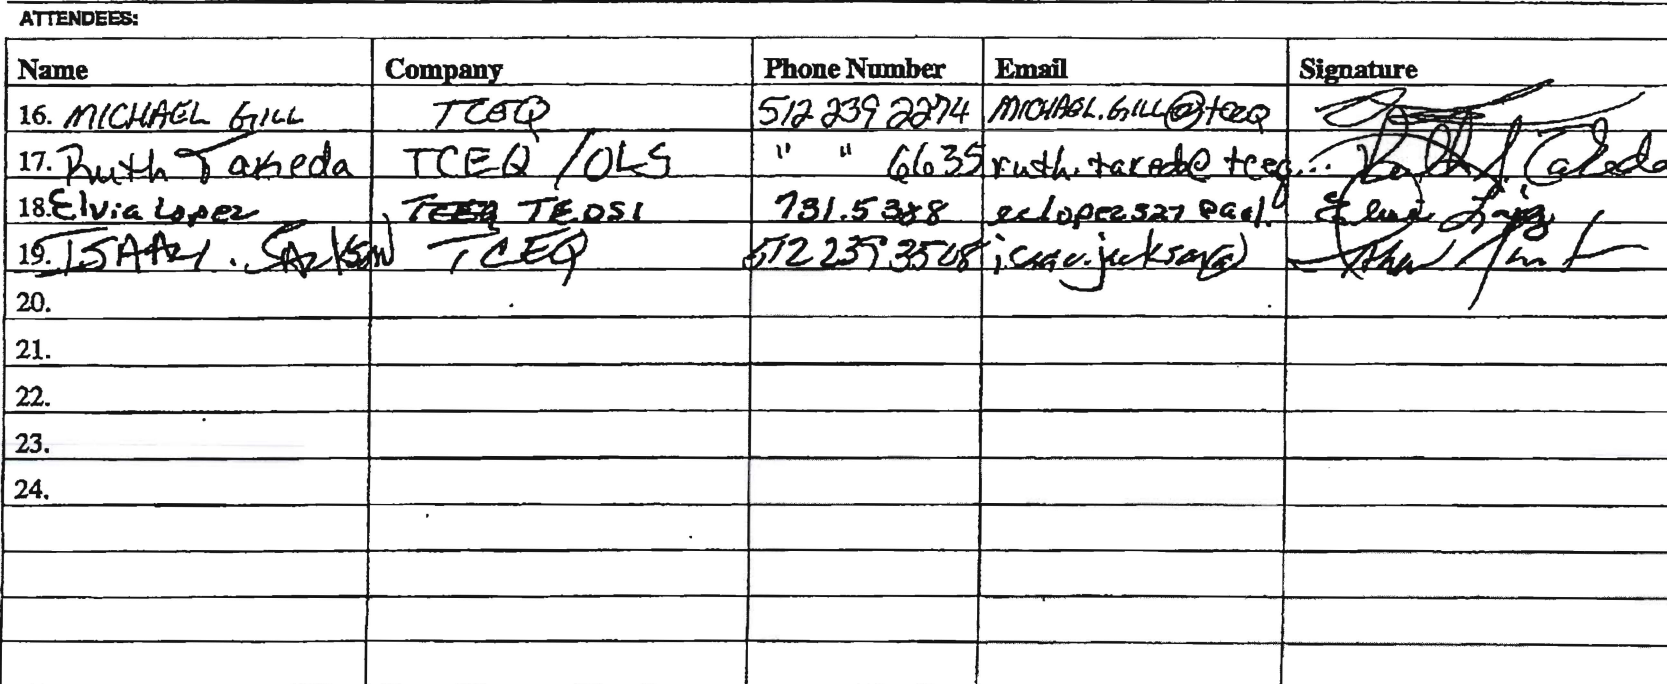 ATTENDEES:
Name Company Phone Number Email Signature
16. MICHAEL GILL TCEQ 512 239 2274 MICHAEL.GILL@tceq
17. Ruth Takeda TCEQ /OLS " " 6635 ruth.takeda@tceq... Ruth Takeda
18. Elvia Lopez TCEQ TEOSI 731.5388 eclopez327@aol. Elvia Lopez
19. ISAAC. JACKSON TCEQ 512 239 3528 isaac.jackson@
20.
21.
22.
23.
24.